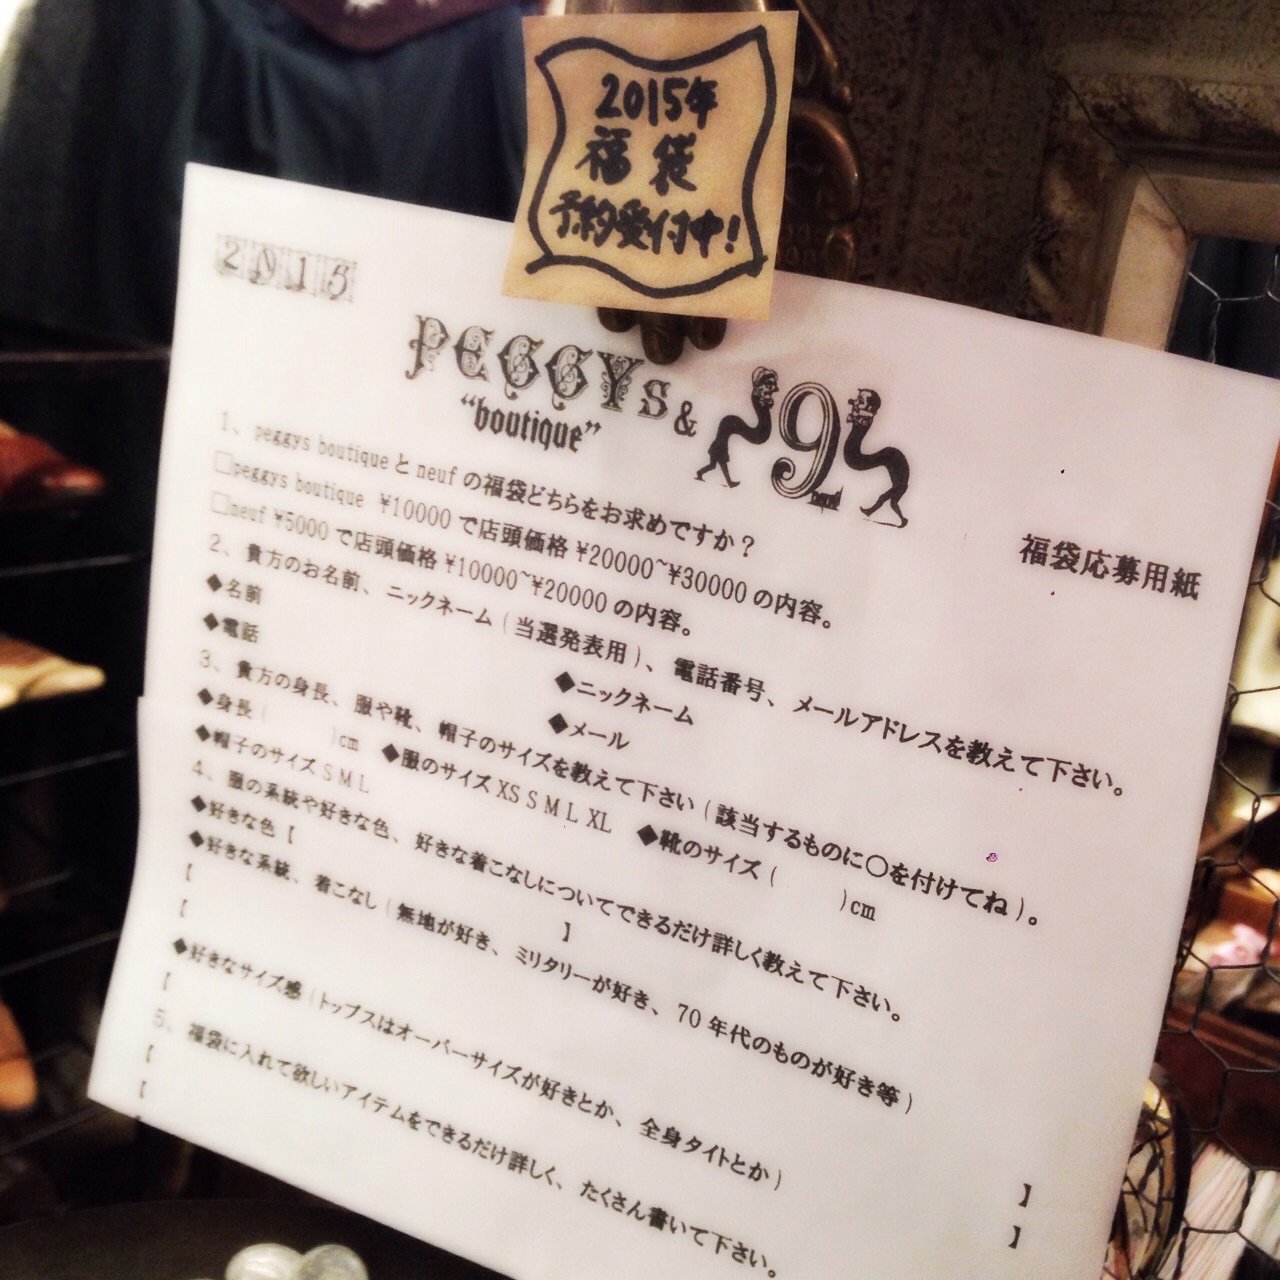 2015年
福袋
予約受付中!
2015
PEGGYS & 9
"boutique"
neuf
福袋応募用紙
1、peggys boutique と neuf の福袋どちらをお求めですか？
□peggys boutique ¥10000 で店頭価格 ¥20000~¥30000 の内容。
□neuf ¥5000 で店頭価格 ¥10000~¥20000 の内容。
2、貴方のお名前、ニックネーム（当選発表用）、電話番号、メールアドレスを教えて下さい。
◆名前 ◆ニックネーム
◆電話 ◆メール
3、貴方の身長、服や靴、帽子のサイズを教えて下さい（該当するものに○を付けてね）。
◆身長（ ）cm ◆服のサイズ XS S M L XL ◆靴のサイズ（ ）cm
◆帽子のサイズ S M L
4、服の系統や好きな色、好きな着こなしについてできるだけ詳しく教えて下さい。
◆好きな色【 】
◆好きな系統、着こなし（無地が好き、ミリタリーが好き、70 年代のものが好き等）
【
【 】
◆好きなサイズ感（トップスはオーバーサイズが好きとか、全身タイトとか）
【 】
5、福袋に入れて欲しいアイテムをできるだけ詳しく、たくさん書いて下さい。
【
【